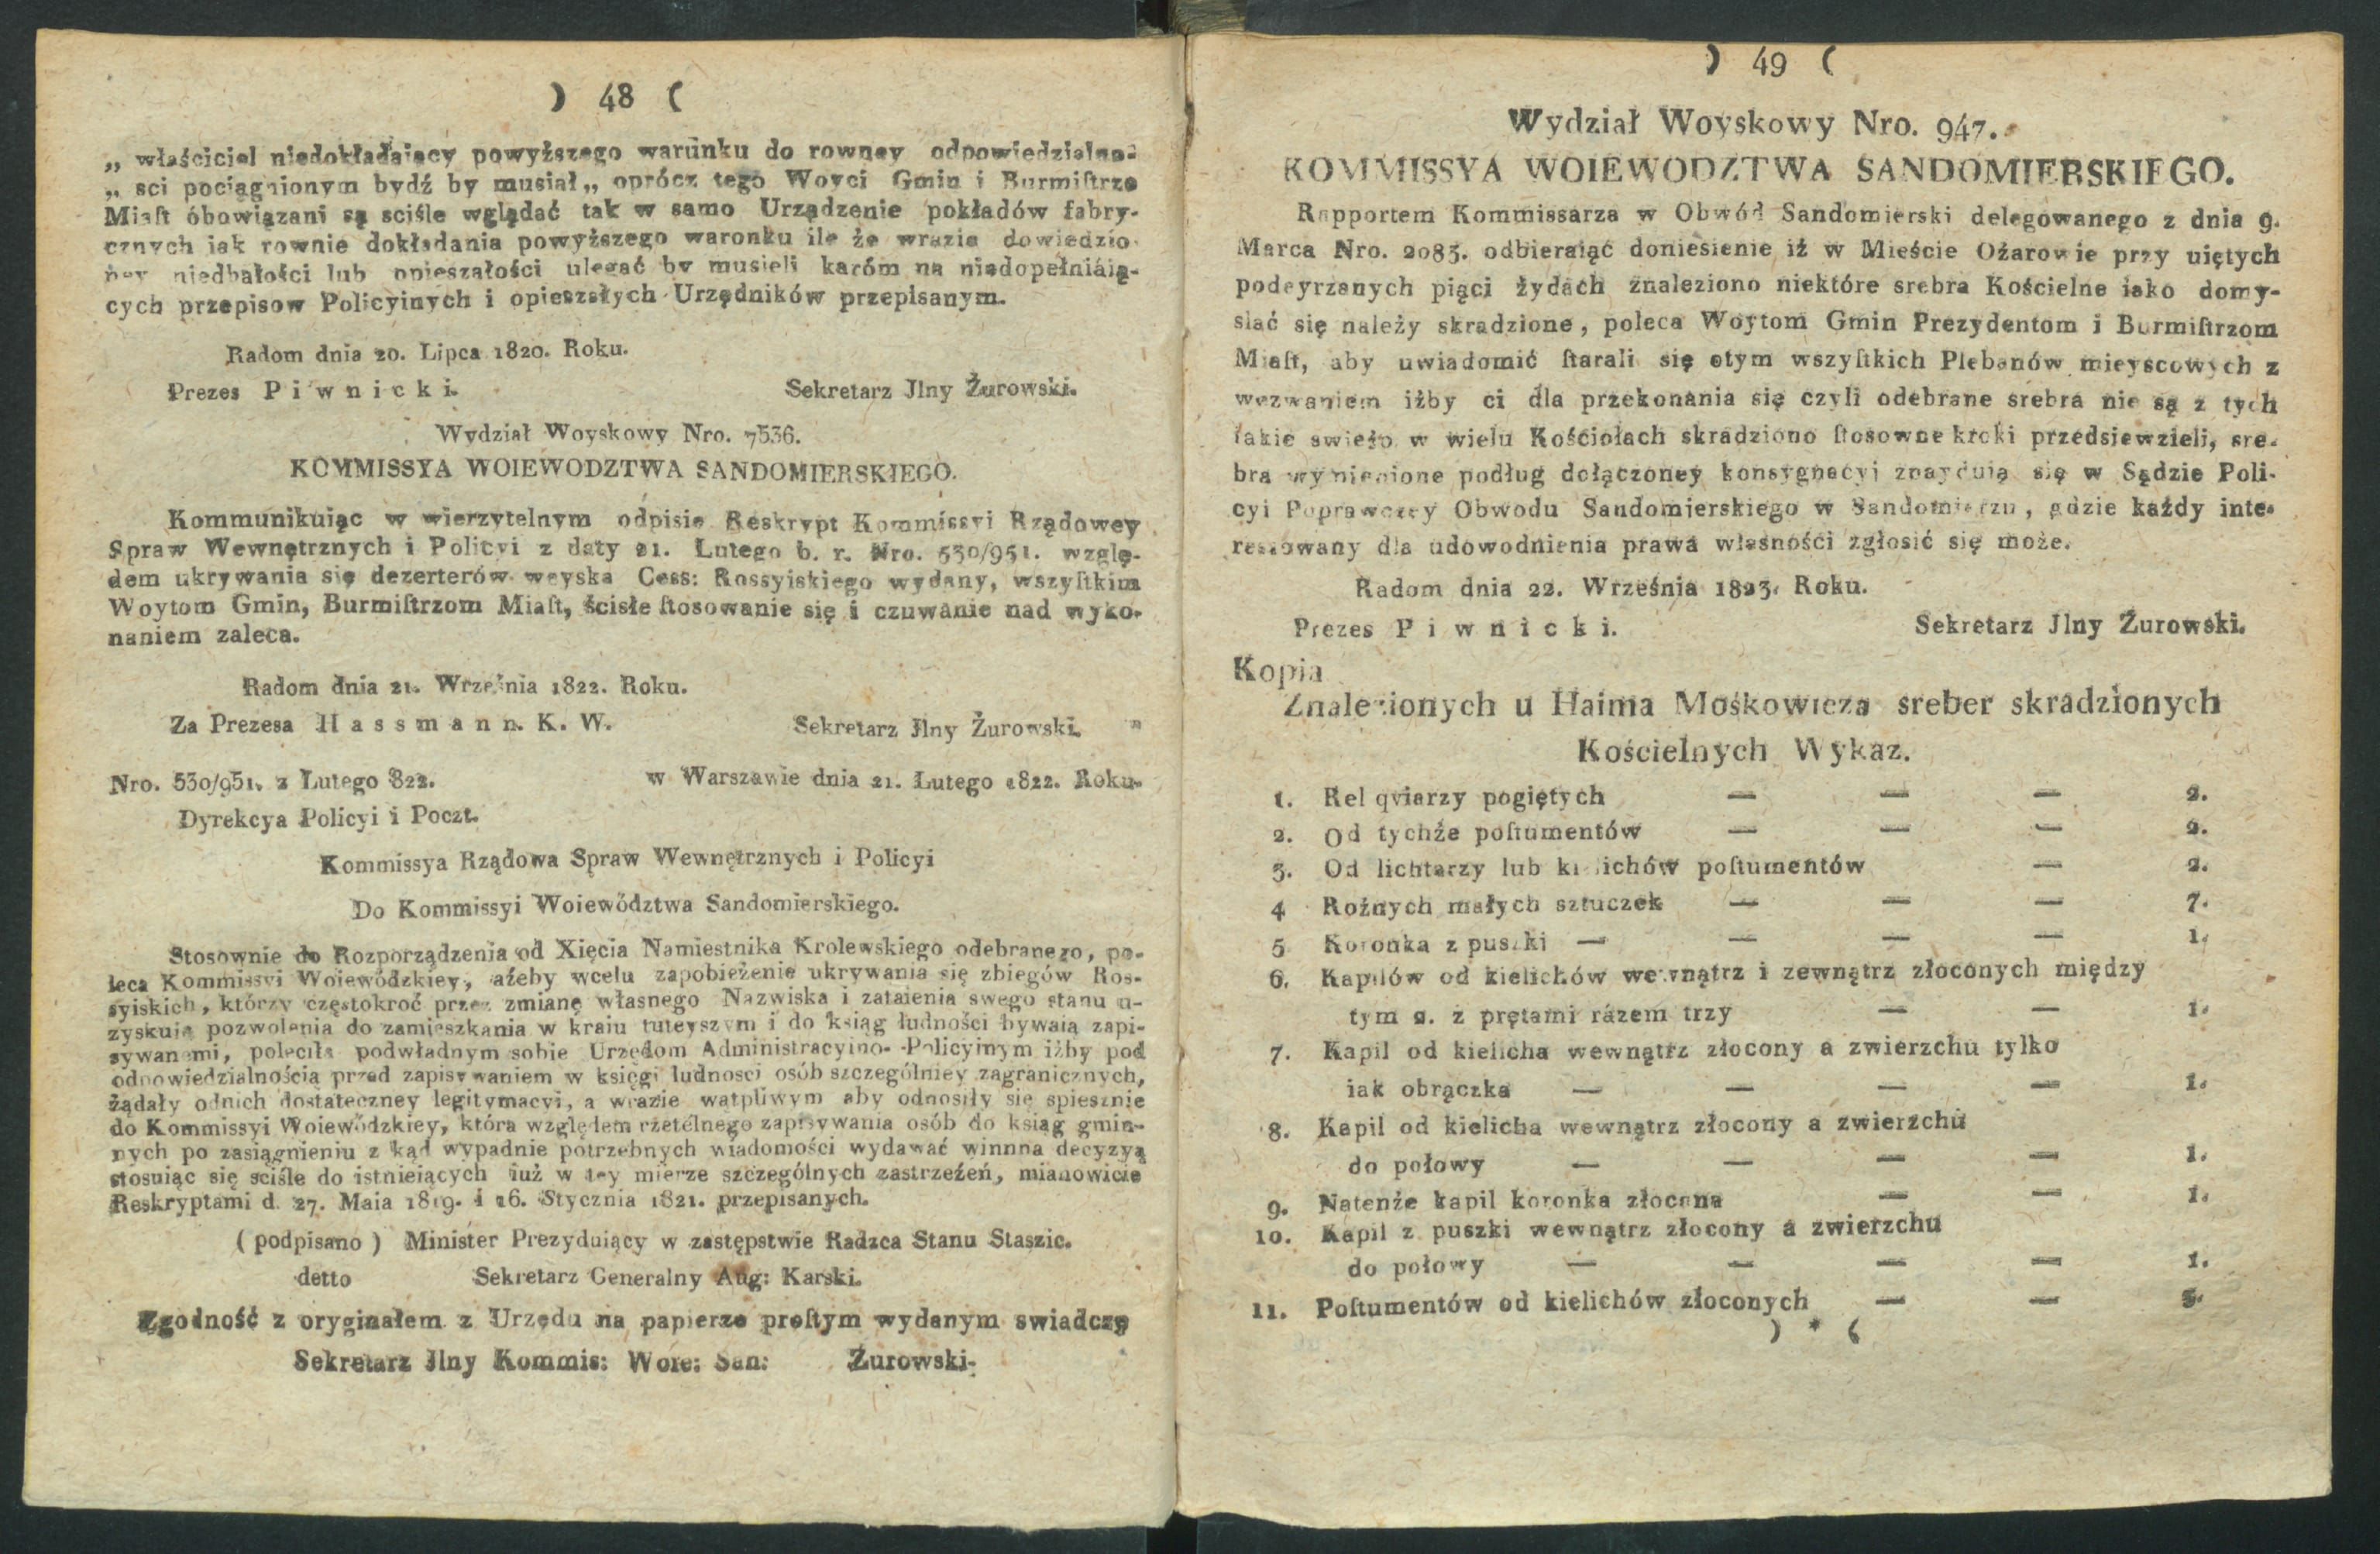 ) 48 (
„ właściciel niedokładaiący powyższego warunku do rowney odpowiedzialno-
„ sci pociągnionym bydź by musiał„ oprócz tego Woyci Gmin i Burmiſtrze
Miaſt óbowiązani są sciśle wglądać tak w samo Urządzenie pokładów fabry-
cznych iak rownie dokładania powyższego waronku ile że wrazie dowiedzio-
ney niedbałości lub opieszałości ulegać by musieli karóm na niedopełniáią-
cych przepisow Policyinych i opieszałych Urzędników przepisanym.
Radom dnia 20. Lipca 1820. Roku.
Prezes P i w n i c k i. Sekretarz Jlny Żurowski.
Wydział Woyskowy Nro. 7536.
KOMMISSYA WOIEWODZTWA SANDOMIERSKIEGO.
Kommunikuiąc w wierzytelnym odpisie Reskrypt Kommissyi Rządowey
Spraw Wewnętrznych i Policyi z daty 21. Lutego b. r. Nro. 530/951. wzglę-
dem ukrywania się dezerterów weyska Cess: Rossyiskiego wydany, wszyſtkim
Woytom Gmin, Burmiſtrzom Miaſt, ścisłe ſtosowanie się i czuwanie nad wyko-
naniem zaleca.
Radom dnia 21. Września 1822. Roku.
Za Prezesa H a s s m a n n. K. W. Sekretarz Jlny Żurowski.
Nro. 530/951. z Lutego 822. w Warszawie dnia 21. Lutego 1822. Roku.
Dyrekcya Policyi i Poczt.
Kommissya Rządowa Spraw Wewnętrznych i Policyi
Do Kommissyi Woiewództwa Sandomierskiego.
Stosownie do Rozporządzenia od Xięcia Namiestnika Krolewskiego odebranego, po-
leca Kommissyi Woiewódzkiey, ażeby wcelu zapobieżenie ukrywania się zbiegów Ros-
syiskich, którzy częstokroć przez zmianę własnego Nazwiska i zataienia swego stanu u-
zyskuią pozwolenia do zamieszkania w kraiu tuteyszym i do ksiąg ludności bywaią zapi-
sywanemi, poleciła podwładnym sobie Urzędom Administracyino-Policyinym iżby pod
odpowiedzialnością przed zapisywaniem w księgi ludnosci osób szczególniey zagranicznych,
żądały odnich dostateczney legitymacyi, a wrazie wątpliwym aby odnosiły się spiesznie
do Kommissyi Woiewódzkiey, która względem rzetélnego zapisywania osób do ksiąg gmin-
nych po zasiągnieniu z kąd wypadnie potrzebnych wiadomości wydawać winnna decyzyą
stosuiąc się sciśle do istnieiących iuż w tey mierze szczególnych zastrzeżeń, mianowicie
Reskryptami d. 27. Maia 1819. i 16. Stycznia 1821. przepisanych.
( podpisano ) Minister Prezyduiący w zastępstwie Radzca Stanu Staszic.
detto Sekretarz Generalny Aug: Karski.
Zgodność z oryginałem z Urzędu na papierze proſtym wydanym swiadczę
Sekretarz Jlny Kommis: Woie: San: Żurowski.
) 49 (
Wydział Woyskowy Nro. 947.
KOMMISSYA WOIEWODZTWA SANDOMIERSKIEGO.
Rapportem Kommissarza w Obwód Sandomierski delegowanego z dnia 9.
Marca Nro. 2083. odbieraiąć doniesienie iż w Mieście Ożarowie przy uiętych
podeyrzanych piąci żydach znaleziono niektóre srebra Kościelne iako domy-
slać się należy skradzione, poleca Woytom Gmin Prezydentom i Burmiſtrzom
Miaſt, aby uwiadomić ſtarali się otym wszyſtkich Plebanów mieyscowych z
wezwaniem iżby ci dla przekonania się czyli odebrane srebra nie są z tych
iakie swieżo w wielu Kościołach skradziono ſtosowne kroki przedsiewzieli, sre-
bra wymienione podług dołączoney konsygnacyi znayduią się w Sądzie Poli-
cyi Poprawczey Obwodu Sandomierskiego w Sandomierzu, gdzie każdy inte-
ressowany dla udowodnienia prawa własnośći zgłosić się może.
Radom dnia 22. Września 1823. Roku.
Prezes P i w n i c k i. Sekretarz Jlny Żurowski.
Kopia
Znalezionych u Haima Mośkowicza sreber skradzionych
Kościelnych Wykaz.
1. Rel qviarzy pogiętych — — — 2.
2. Od tychże poſtumentów — — — 2.
3. Od lichtarzy lub kielichów poſtumentów — 2.
4 Rożnych małych sztuczek — — — 7.
5 Koronka z puszki — — — — 1.
6. Kapilów od kielichów wewnątrz i zewnątrz złoconych między
tym 2. z prętami rázem trzy — — 1.
7. Kapil od kielicha wewnątrz złocony a zwierzchu tylko
iak obrączka — — — — 1.
8. Kapil od kielicha wewnątrz złocony a zwierzchu
do połowy — — — — 1.
9. Natenże kapil koronka złocona — — 1.
10. Kapil z puszki wewnątrz złocony a zwierzchu
do połowy — — — — 1.
11. Poſtumentów od kielichów złoconych — — 5.
) * (